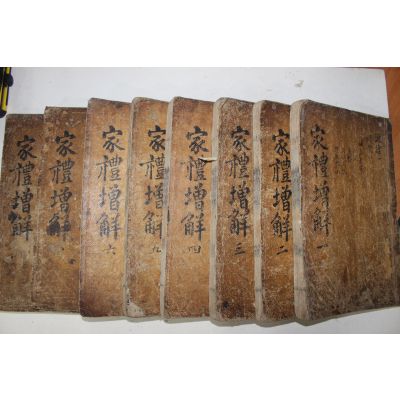 家禮增解 一
家禮增解 二
家禮增解 三
家禮增解 四
家禮增解 九
家禮增解 六
家禮增解
家禮增解